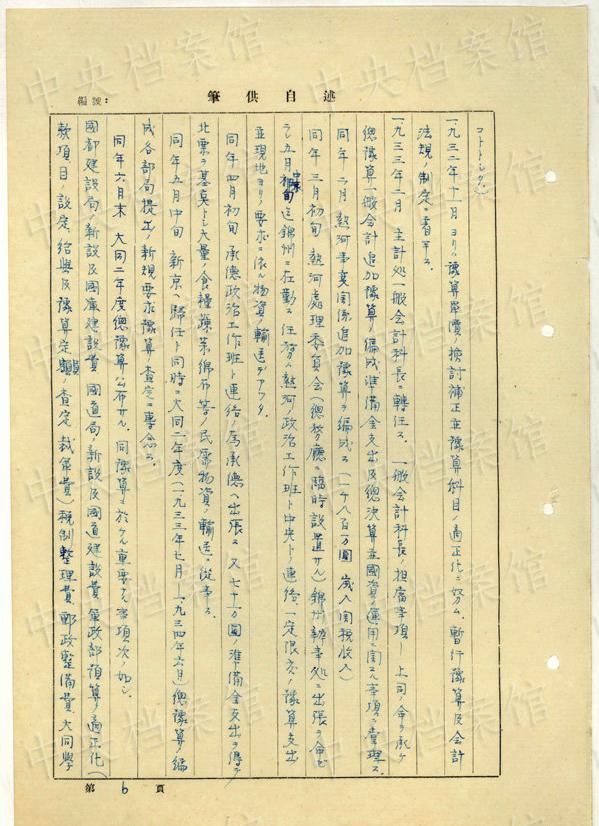 編號:
筆供自述
コトトシタ。)
一九三二年十一月ヨリ豫算單價ノ檢討補正並豫算科目ノ適正化ニ努ム。暫行豫算及会計
法規ノ制定ニ着手ス。
一九三三年二月 主計処一般会計科長ニ轉任ス。一般会計科長ノ担當事項ー上司ノ命ヲ承ケ
總豫算一般会計追加豫算ノ編成準備金支出及總決算並國資ノ運用ニ関スル事項ヲ掌理ス
同年二月 熱河事変関係追加豫算ヲ編成ス(一千八百万圓 歳入関税收入)
同年三月初旬 熱河處理委員会(總務廳ニ臨時設置サル)錦州辨事処ニ出張ヲ命ゼ
ラレ五月中旬迄錦州ニ在勤ス 任務ハ熱河ノ政治工作班ト中央トノ連絡、一定限度ノ豫算支出
並現地ヨリノ要求ニ依ル物資ノ輸送デアツタ。
同年四月初旬 承德政治工作班ト連絡ノ為承德ヘ出張ス 又七十万圓ノ準備金支出ヲ得テ
北票ヲ基点トシ大量ノ食糧 綿布等ノ民需物資ノ輸送ニ從事ス。
同年五月中旬 新京ヘ歸任ト同時ニ大同二年度(一九三三年七月ー一九三四年六月)總豫算ノ編
成各部局提出ノ新規要求豫算ノ査定ニ專念ス。
同年六月末 大同二年度總豫算公布サル。同豫算ニ於ケル重要ナル事項次ノ如シ
國都建設局ノ新設及國都建設費 國道局ノ新設及國道建設費 軍政部預算ノ適正化(
款項目ノ設定、給與及豫算定額ノ査定 裁軍費)税制整理費 郵政整備費 大同學
第 6 頁
中央档案馆